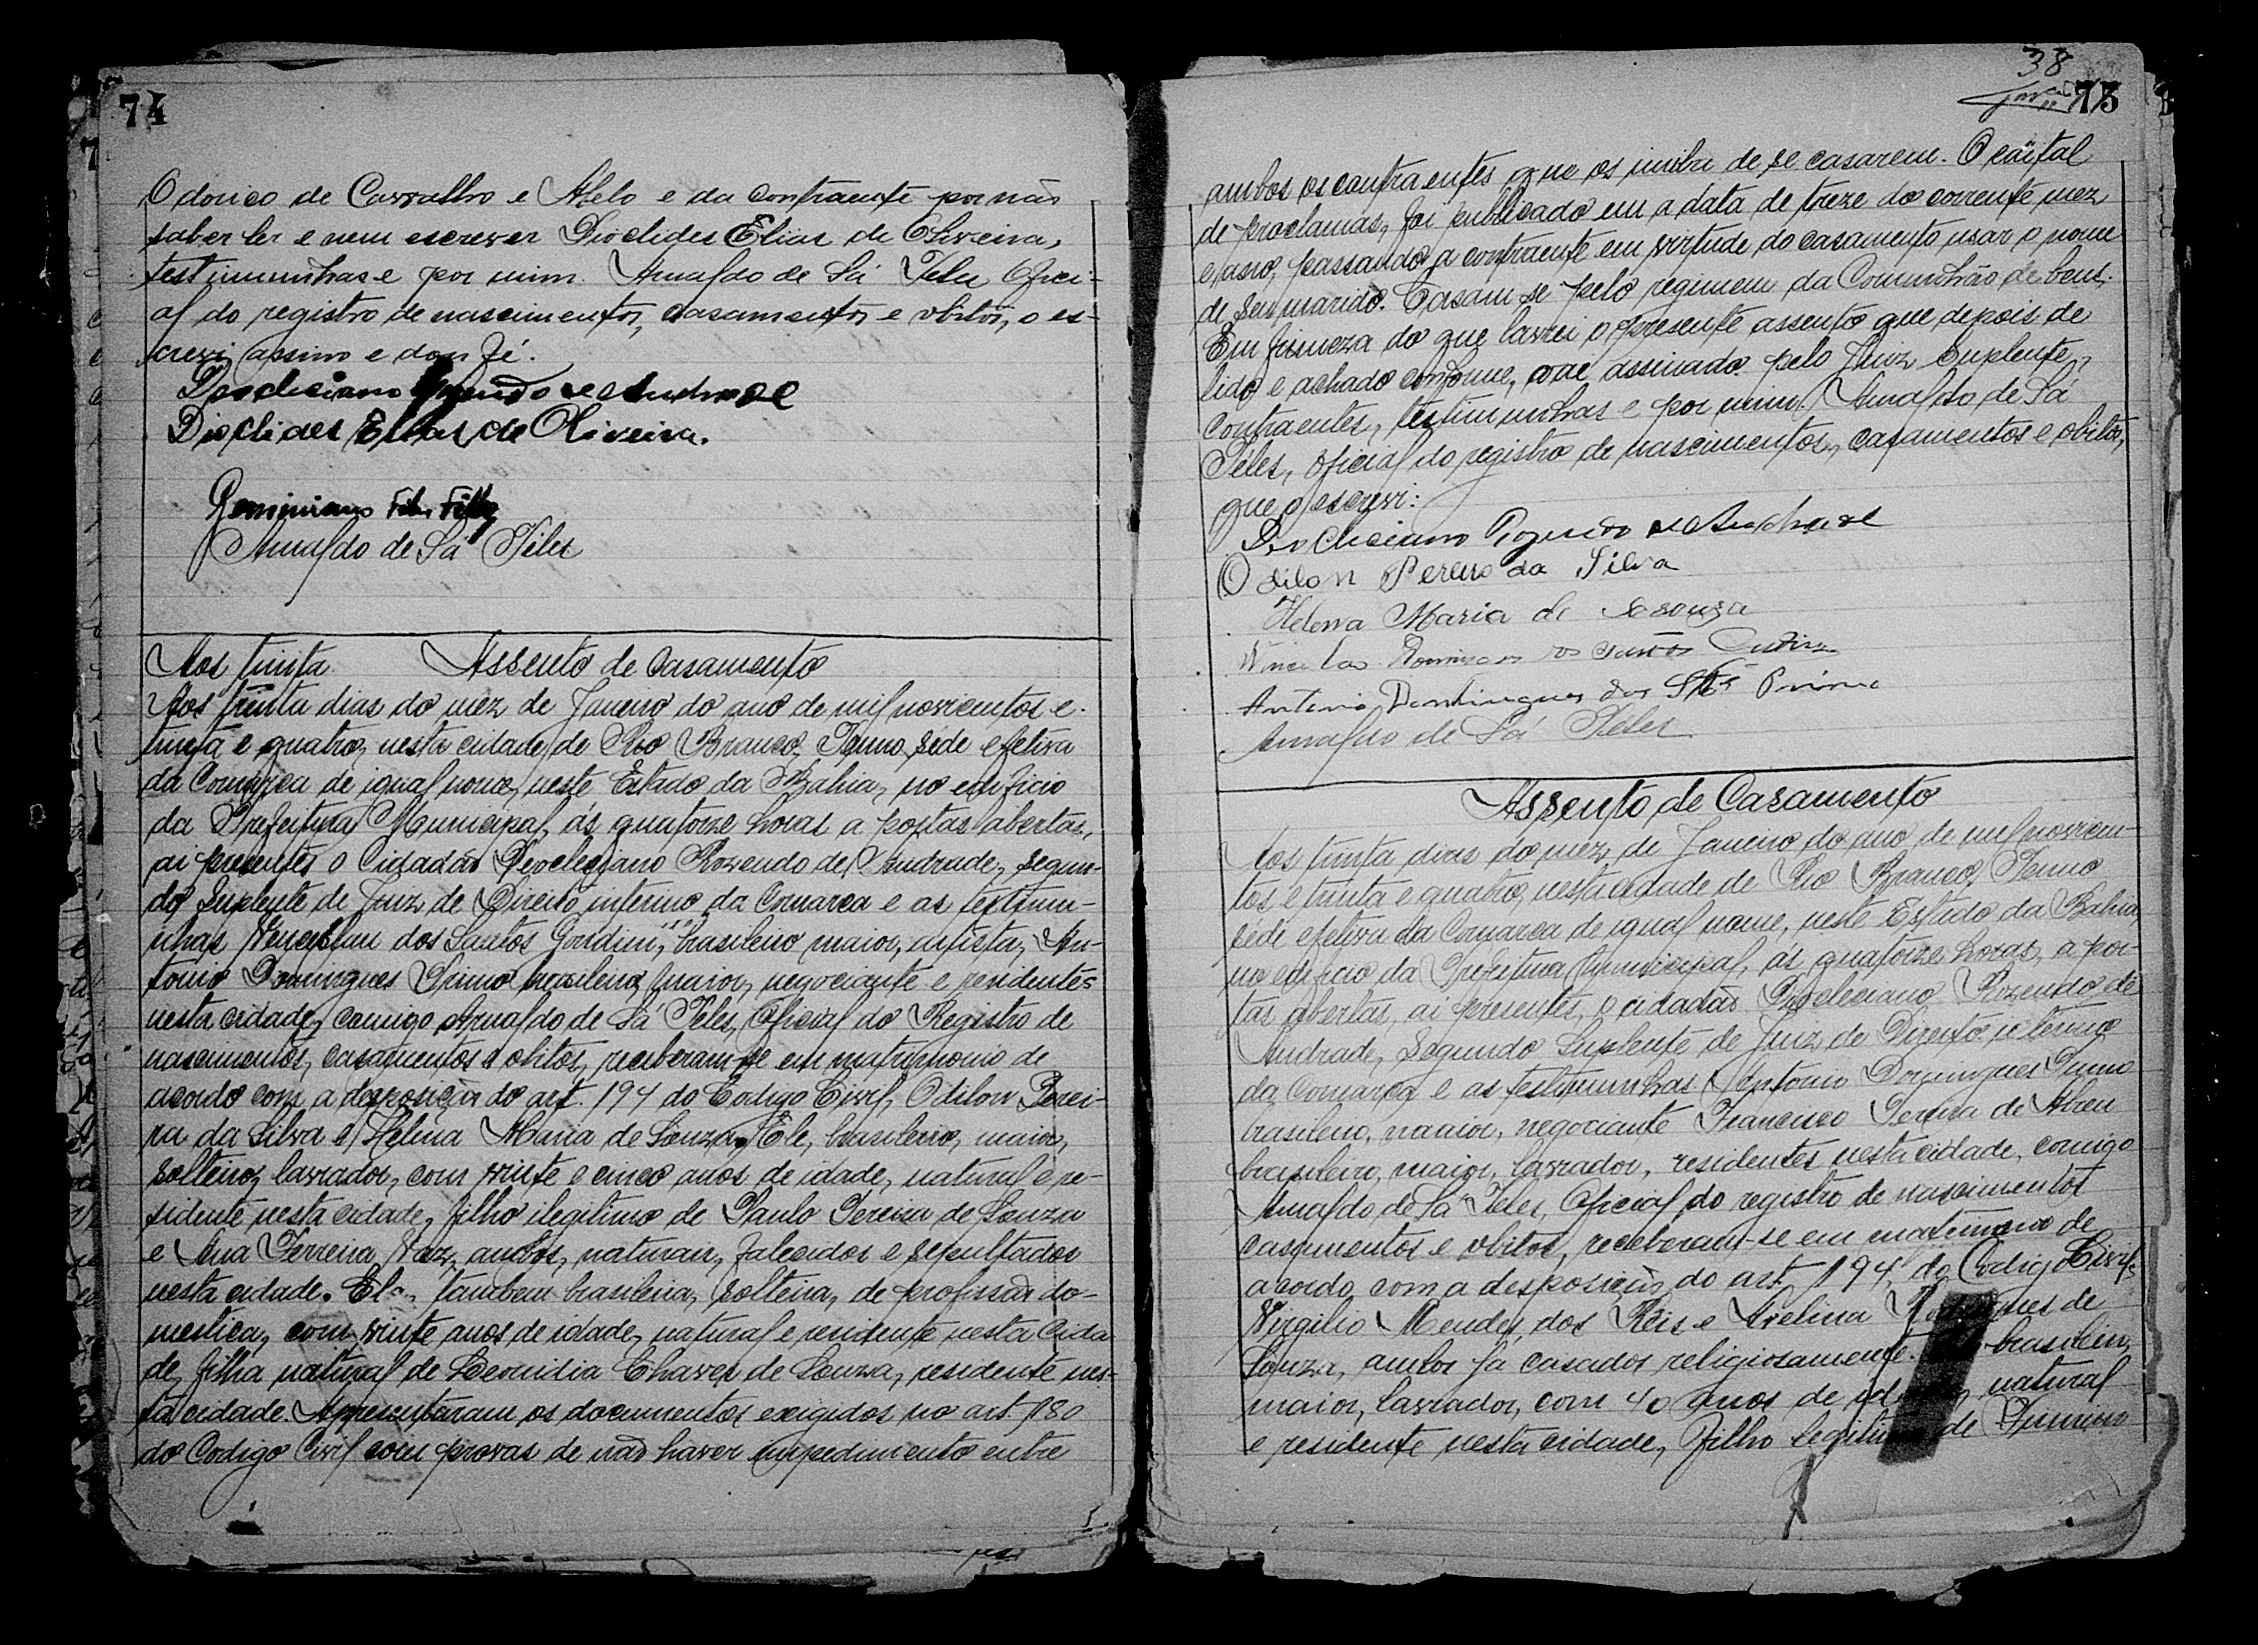 74
Odorico de Carvalho e Melo e da contraente por não
saber ler e nem escrever Dioclides Elias de Oliveira,
testimunhas e por mim. Arnaldo de Sá Teles Ofici-
al do registro de nascimentos, casamentos e obitos, o es-
crevi assino e dou fé.
Dioclides Elias de Oliveira.
Arnaldo de Sá Teles
Aos trinta. Assento de Casamento
Aos trinta dias do mez de Janeiro do ano de mil novicentos e
trinta e quatro, nesta cidade de Rio Branco, Termo sede efetiva
da Comarca de igual nome, neste Estado da Bahia, no edificio
da Prefeitura Municipal, ás quatorze horas a portas abertas,
ai presentes o Cidadão Deocleciano Rozendo de Andrade, segun-
do Suplente de Juiz de Direito interino da Comarca e as testimu-
nhas Venceslau dos Santos Gondim, brasileiro maior, artista, An-
tonio Domingues Primo brasileiro, maior, negociante e residentes
nesta cidade, comigo Arnaldo de Sá Teles, Oficial do Registro de
nascimentos, casamentos e obitos, receberam-se em matrimonio de
acordo com a desposição do art. 194 do Codigo Civil, Odilon Perei-
ra da Silva e Helena Maria de Souza. Ele, brasileiro, maior,
solteiro, lavrador, com vinte e cinco anos de idade, natural e re-
sidente nesta cidade, filho ilegitimo de Paulo Pereira de Souza
e Ana Ferreira Vaz, ambos, naturais, falecidos e sepultados
nesta cidade. Ela, tambem brasileira, solteira, de profissão do-
mestica, com vinte anos de idade, natural e residente nesta cida
de, filha natural de Leonidia Chaves de Souza, residente nes-
ta cidade. Apresentaram os documentos exigidos no art. 180
do Codigo Civil com provas de não haver impedimento entre
38
75
ambos os contraentes que os iniba de se casarem. O edital
de proclamas, foi publicado em a data de treze do corrente mez
e ano, passando a contraente em virtude do casamento usar o nome
de seu marido. Casam se pelo regimem da Comunhão de bens.
Em firmeza do que lavrei o presente assento que depois de
lido e achado conforme, vai assinado pelo Juiz Suplente,
Contraentes, testimunhas e por mim. Arnaldo de Sá
Teles, oficial do registro de nascimentos, casamentos e obitos,
que o escrevi:
Deocleciano Rozendo de Andrade
Odilon Pereira da Silva
Helena Maria de Sosouza
Antonio Domingues dos Stos Primo
Arnaldo de Sá Teles
Assento de Casamento
Aos trinta dias do mez de Janeiro do ano de mil novicen-
tos e trinta e quatro, nesta cidade de Rio Branco, Termo
sede efetiva da Comarca de igual nome, neste Estado da Bahia
no edificio da Prefeitura Municipal, ás quatorze horas, a por-
tas abertas, ai presentes, o cidadão Deocleciano Rozendo de
Andrade, Segundo Suplente de Juiz de Direito interino
da Comarca e as testimunhas Antonio Domingues Primo
brasileiro, maior, negociante Francisco Pereira de Abreu
brasileiro, maior, lavrador, residentes nesta cidade, comigo
Arnaldo de Sá Teles, Oficial do registro de nascimentos
casamentos e obitos, receberam-se em matrimonio de
acordo com a desposição do art. 194 do Codigo Civil,
Virgilio Mendes dos Reis e Avelina de
Souza, ambos já casados religiosamente. brasileiro,
maior, lavrador, com 40 anos de natural
e residente nesta cidade, filho de